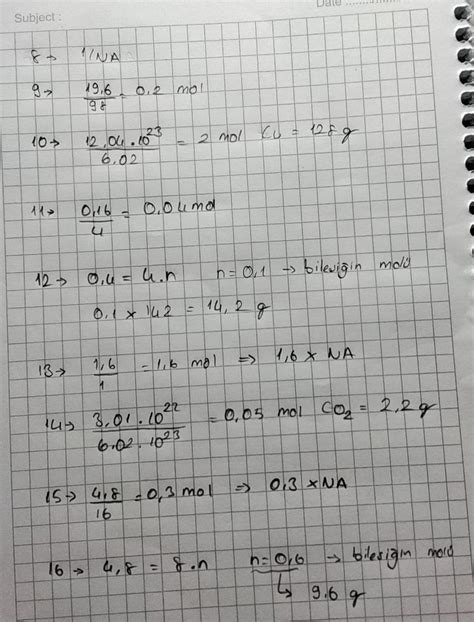 Subject :
Date ..........
8→ 1/NA
9→ 19,6/98 = 0,2 mol
10→ 12,04.10^23/6,02 = 2 mol Cu = 128 g
11→ 0,16/4 = 0,04 mol
12→ 0,4 = 4.n n=0,1 → bileşiğin molü
0,1 x 142 = 14,2 g
13→ 1,6/1 = 1,6 mol ⇒ 1,6 x NA
14→ 3,01.10^22/6,02.10^23 = 0,05 mol CO2 = 2,2 g
15→ 4,8/16 = 0,3 mol ⇒ 0,3 x NA
16→ 4,8 = 8.n n=0,6 → bileşiğin molü
↳ 9,6 g